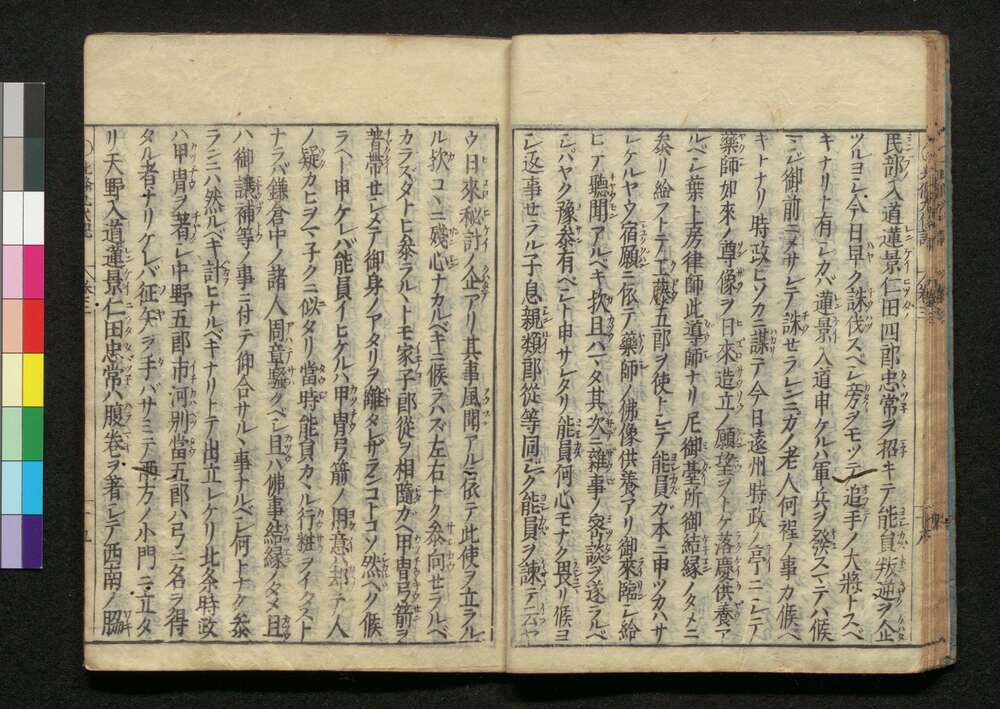 民部入道蓮景仁田四郎忠常ヲ招キテ能員叛逆ヲ企
ツルヨシ今日早ク誅伐スベシ旁ヲモツテ追手ノ大將トスベ
キナリト有シカバ蓮景入道申ケルハ軍兵ヲ發スマテハ候
マジ御前ニメサレテ誅セラレンニカノ老人何程ノ事カ候ベ
キトナリ時政ヒソカニ謀テ今日遠州時政ノ亭ニシテ
藥師如來ノ尊像ヲ日來造立ノ願望ヲトケ落慶供養ア
ルベシ葉上房律師此導師ナリ尼御基所御結縁ノタメニ
參リ給フトテ工藤五郎ヲ使トシテ能員ガ本ニ申ツカハサ
レケルヤウ宿願ニ依テ藥師ノ佛像供養アリ御來臨シ給
ヒテ聽聞アルベキ歟且ハマタ其次ニ雜事ノ密談ヲ遂ラルベ
シハヤク豫參有ベシト申サレタリ能員何心モナク畏リ候ヨ
シ返事セラル子息親類郎從等同シク能員ヲ諫テ云ヤ
ウ日來秘計ノ企アリ其事風聞アルニ依テ此使ヲ立ラル
ル歟コヽニ殘心ナカルベキニ候ラハズ左右ナク參向セラルベ
カラズタトヒ參ラルヽトモ家子郎從ヲ相隨カヘ甲冑弓箭ヲ
著帶セシメテ御身ノアタリヲ離タザランコトコソ然ベク候
ラヘト申ケレバ能員イヒケルハ甲冑弓箭ノ用意却テ人
ノ疑カヒヲマ子クニ似タリ當時能員カヽル行粧ヲイタスト
ナラバ鎌倉中ノ諸人周章騷クベシ且ハ佛事結縁ノタメ且
ハ御讓補等ノ事ニ付テ仰合サルヽ事ナルベシ何トナク參
ランニハ然ルベキ計ヒナルベキナリトテ出立レケリ北条時政
ハ甲冑ヲ著シ中野五郎市河別當五郎ハ弓ニ名ヲ得
タル者ナリケレバ征矢ヲ手バサミテ兩方ノ小門ニ立タ
リ天野入道蓮景仁田忠常ハ腹卷ヲ著シテ西南ノ脇